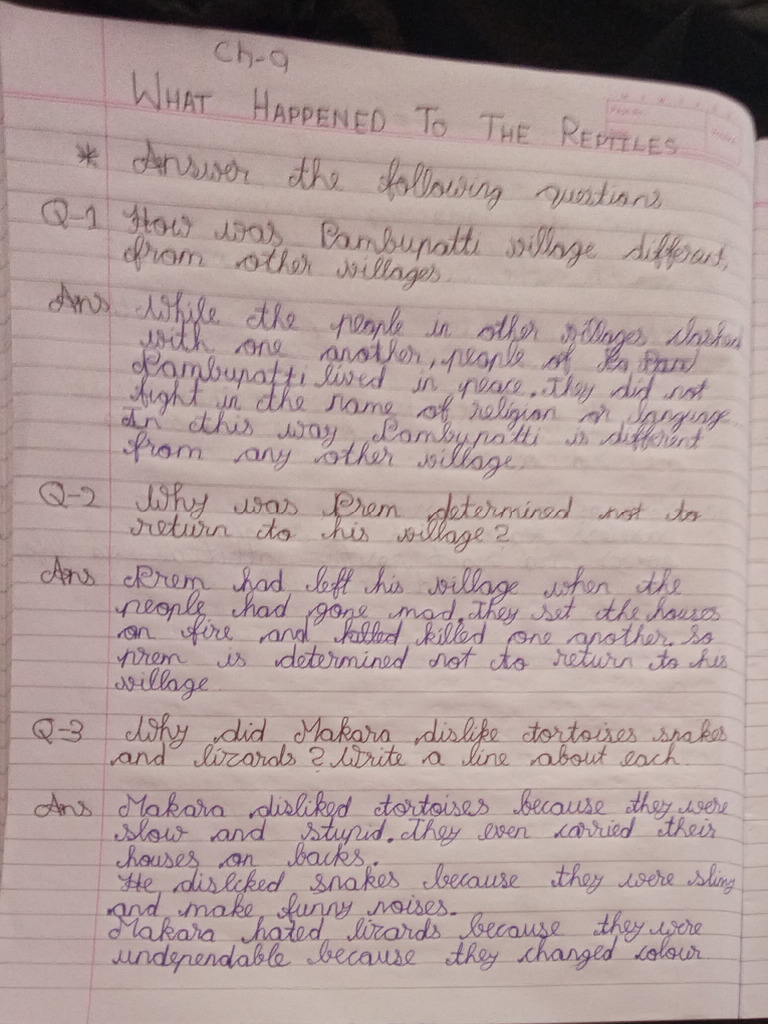 Ch-9
WHAT HAPPENED TO THE REPTILES
* Answer the following questions
Q-1 How was Pambupatti village different,
from other villages.
Ans While the people in other villages
with one another, people of
Pambupatti lived in peace. They did not
fight in the name of religion or language
In this way Pambupatti is different
from any other village.
Q-2 Why was Prem determined not to
return to his village?
Ans Prem had left his village when the
people had gone mad. They set the houses
on fire and killed killed one another. So
prem is determined not to return to his
village
Q-3 Why did Makara dislike tortoises snakes
and lizards? Write a line about each.
Ans Makara disliked tortoises because they were
slow and stupid. They even carried their
houses on backs.
He disliked snakes because they were slimy
and make funny noises.
Makara hated lizards because they were
undependable because they changed colour